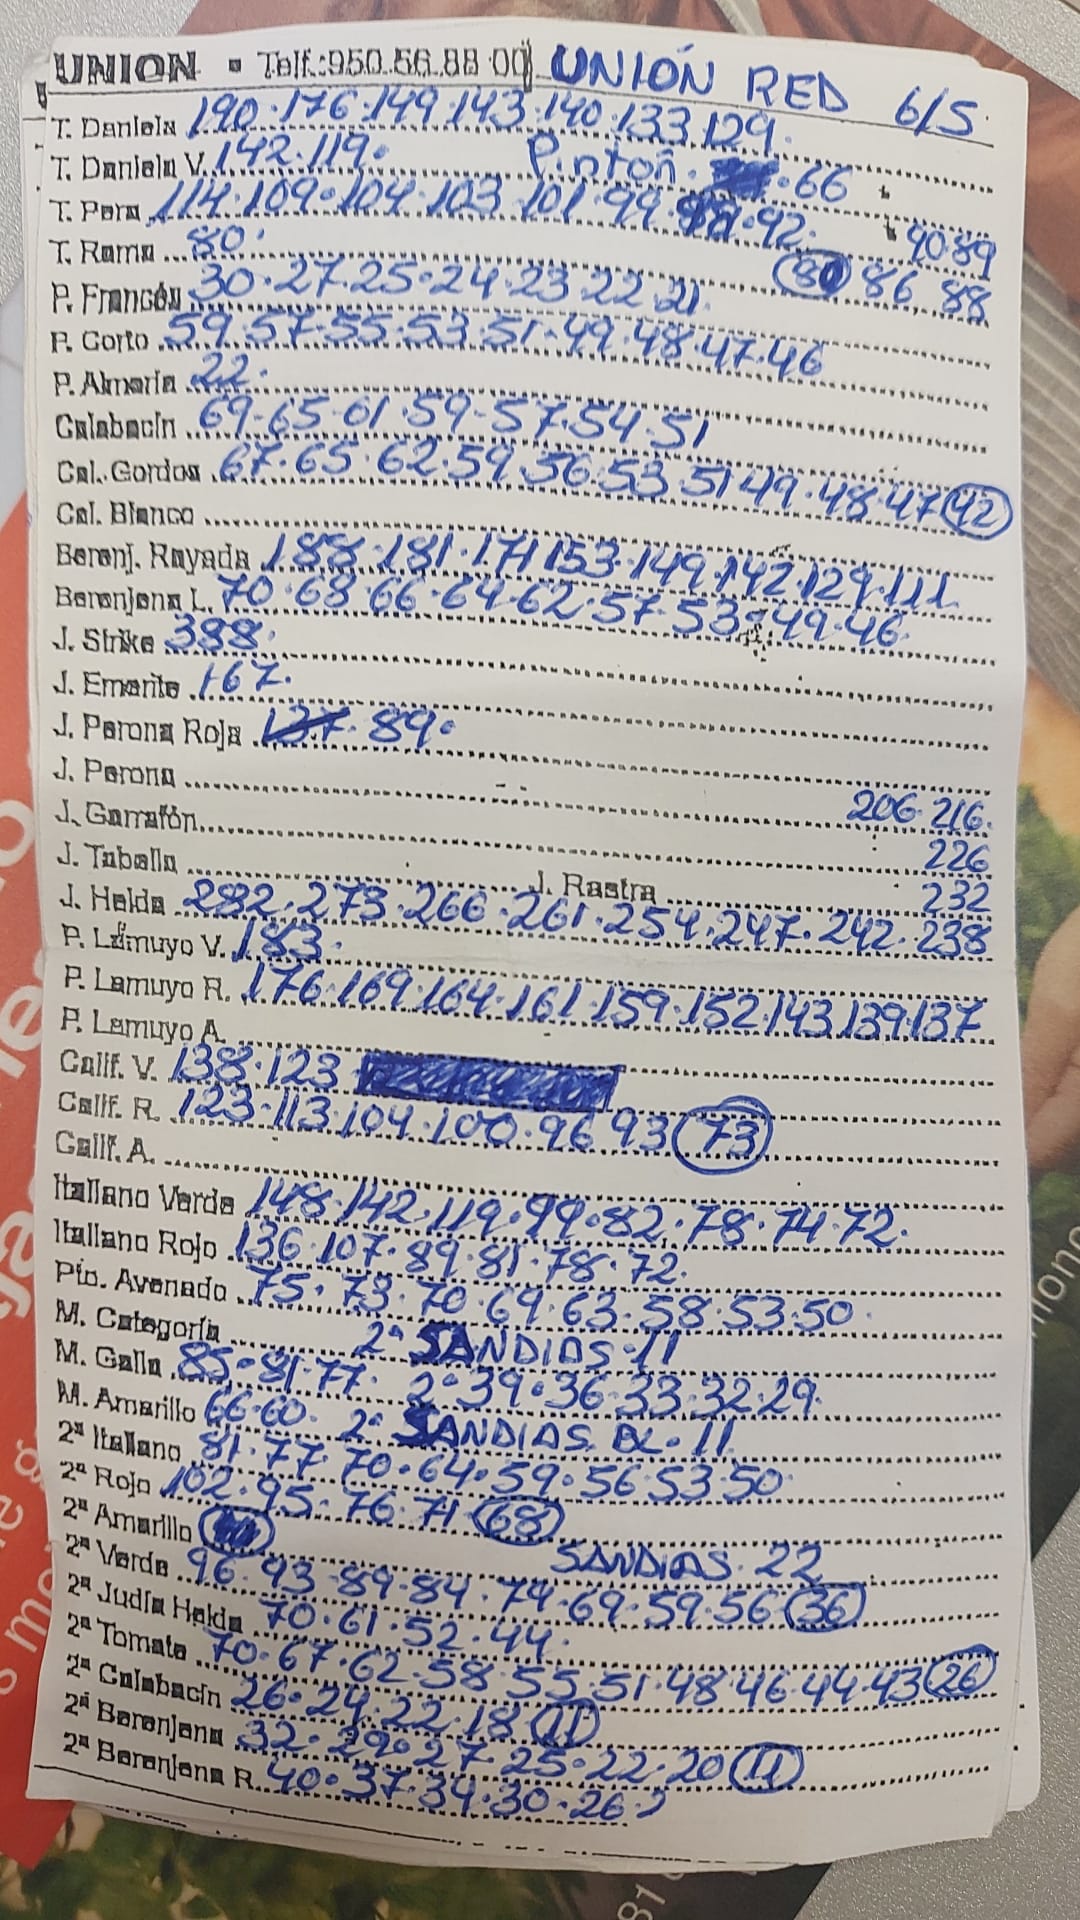 UNION • Telf.:950.56.88 00 UNIÓN RED 6/5.
T. Daniela 190.176.149.143.140.133.129.
T. Daniela V. 142.119. Pintón. .66
T. Pera 114.109.104.103.101.99. .92. 90.89
T. Rama 80. 86 88
P. Francés 30.27.25.24.23 22 21.
P. Corto 59.57.55.53.51.49.48.47.46
P. Almería 22.
Calabacín 69.65 61.59.57.54.51
Cal. Gordos 67.65.62.59.56.53.51 49.48.47 42
Cal. Blanco
Berenj. Rayada 188.181.171 153.149.142.129.111.
Berenjena L. 70.68.66.64.62.57.53.49.46.
J. Strike 388.
J. Emerite 167.
J. Perona Roja 137. 89.
J. Perona
206.216.
J. Garrafón
226
J. Tabella J. Rastra 232
J. Helda 282.273.266.261.254.247.242.238
P. Lamuyo V. 183.
P. Lamuyo R. 176.169.164.161.159.152.143.139.137
P. Lamuyo A.
Calif. V. 138.123
Calif. R. 123.113.104.100.96 93 73
Calif. A.
Italiano Verde 148.142.119.99.82.78.74.72.
Italiano Rojo 136.107.89.81.78.72.
Pto. Avenado 75.73.70.69.63.58.53.50.
M. Categoría 2ª SANDIAS.11
M. Galia 85.81.77. 2ª 39.36.33.32.29.
M. Amarillo 66.60. 2ª SANDIAS. BL. 11.
2ª Italiano 81.77.70.64.59.56.53.50.
2ª Rojo 102.95.76.71 68
2ª Amarillo SANDIAS. 22
2ª Verde 96.93.89.84.74.69.59.56 36
2ª Judía Helda 70.61.52.44.
2ª Tomate 70.67.62.58.55.51.48.46.44.43 26
2ª Calabacín 26.24.22.18 11
2ª Berenjena 32.29.27.25.22.20 11
2ª Berenjena R. 40.37.34.30.26.